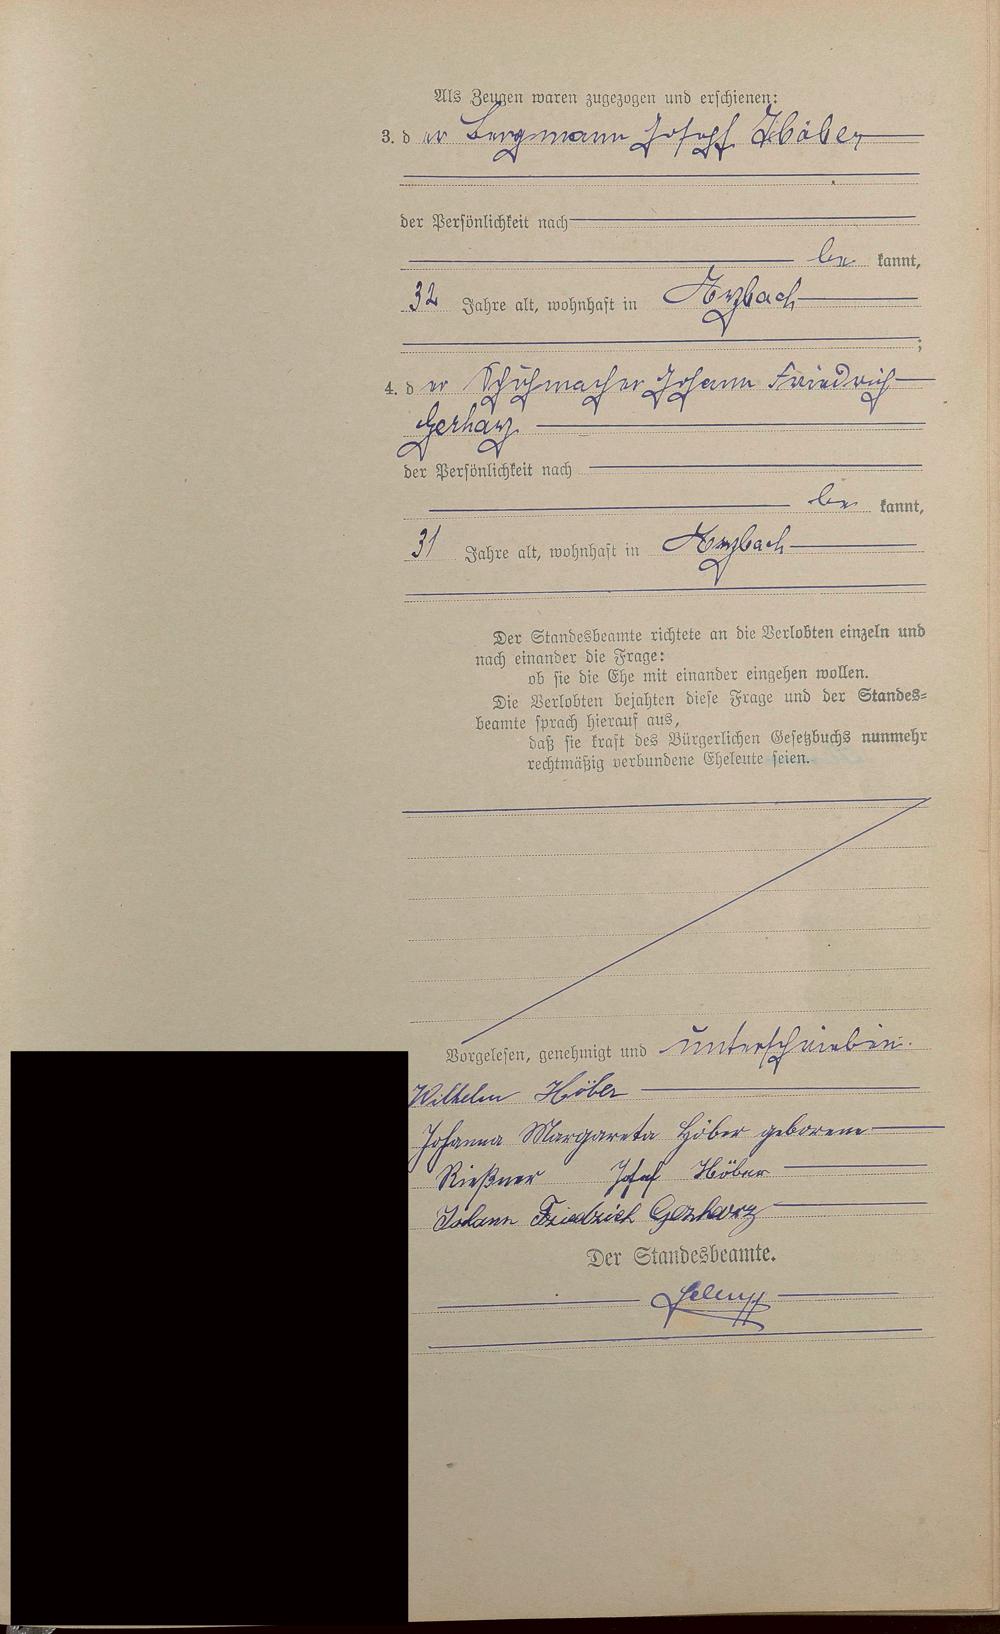 Als Zeugen waren zugezogen und erschienen:
3. der Bergmann Joseph Höber
der Persönlichkeit nach
be kannt,
32 Jahre alt, wohnhaft in Arzbach
;
4. der Schuhmacher Johann Friedrich
Gerharz
der Persönlichkeit nach
be kannt,
31 Jahre alt, wohnhaft in Arzbach
Der Standesbeamte richtete an die Verlobten einzeln und
nach einander die Frage:
ob sie die Ehe mit einander eingehen wollen.
Die Verlobten bejahten diese Frage und der Standes-
beamte sprach hierauf aus,
daß sie kraft des Bürgerlichen Gesetzbuchs nunmehr
rechtmäßig verbundene Eheleute seien.
Vorgelesen, genehmigt und unterschrieben.
Wilhelm Höber
Johanna Margareta Höber geborene
Rießner Josef Höber
Johann Friedrich Gerharz
Der Standesbeamte.